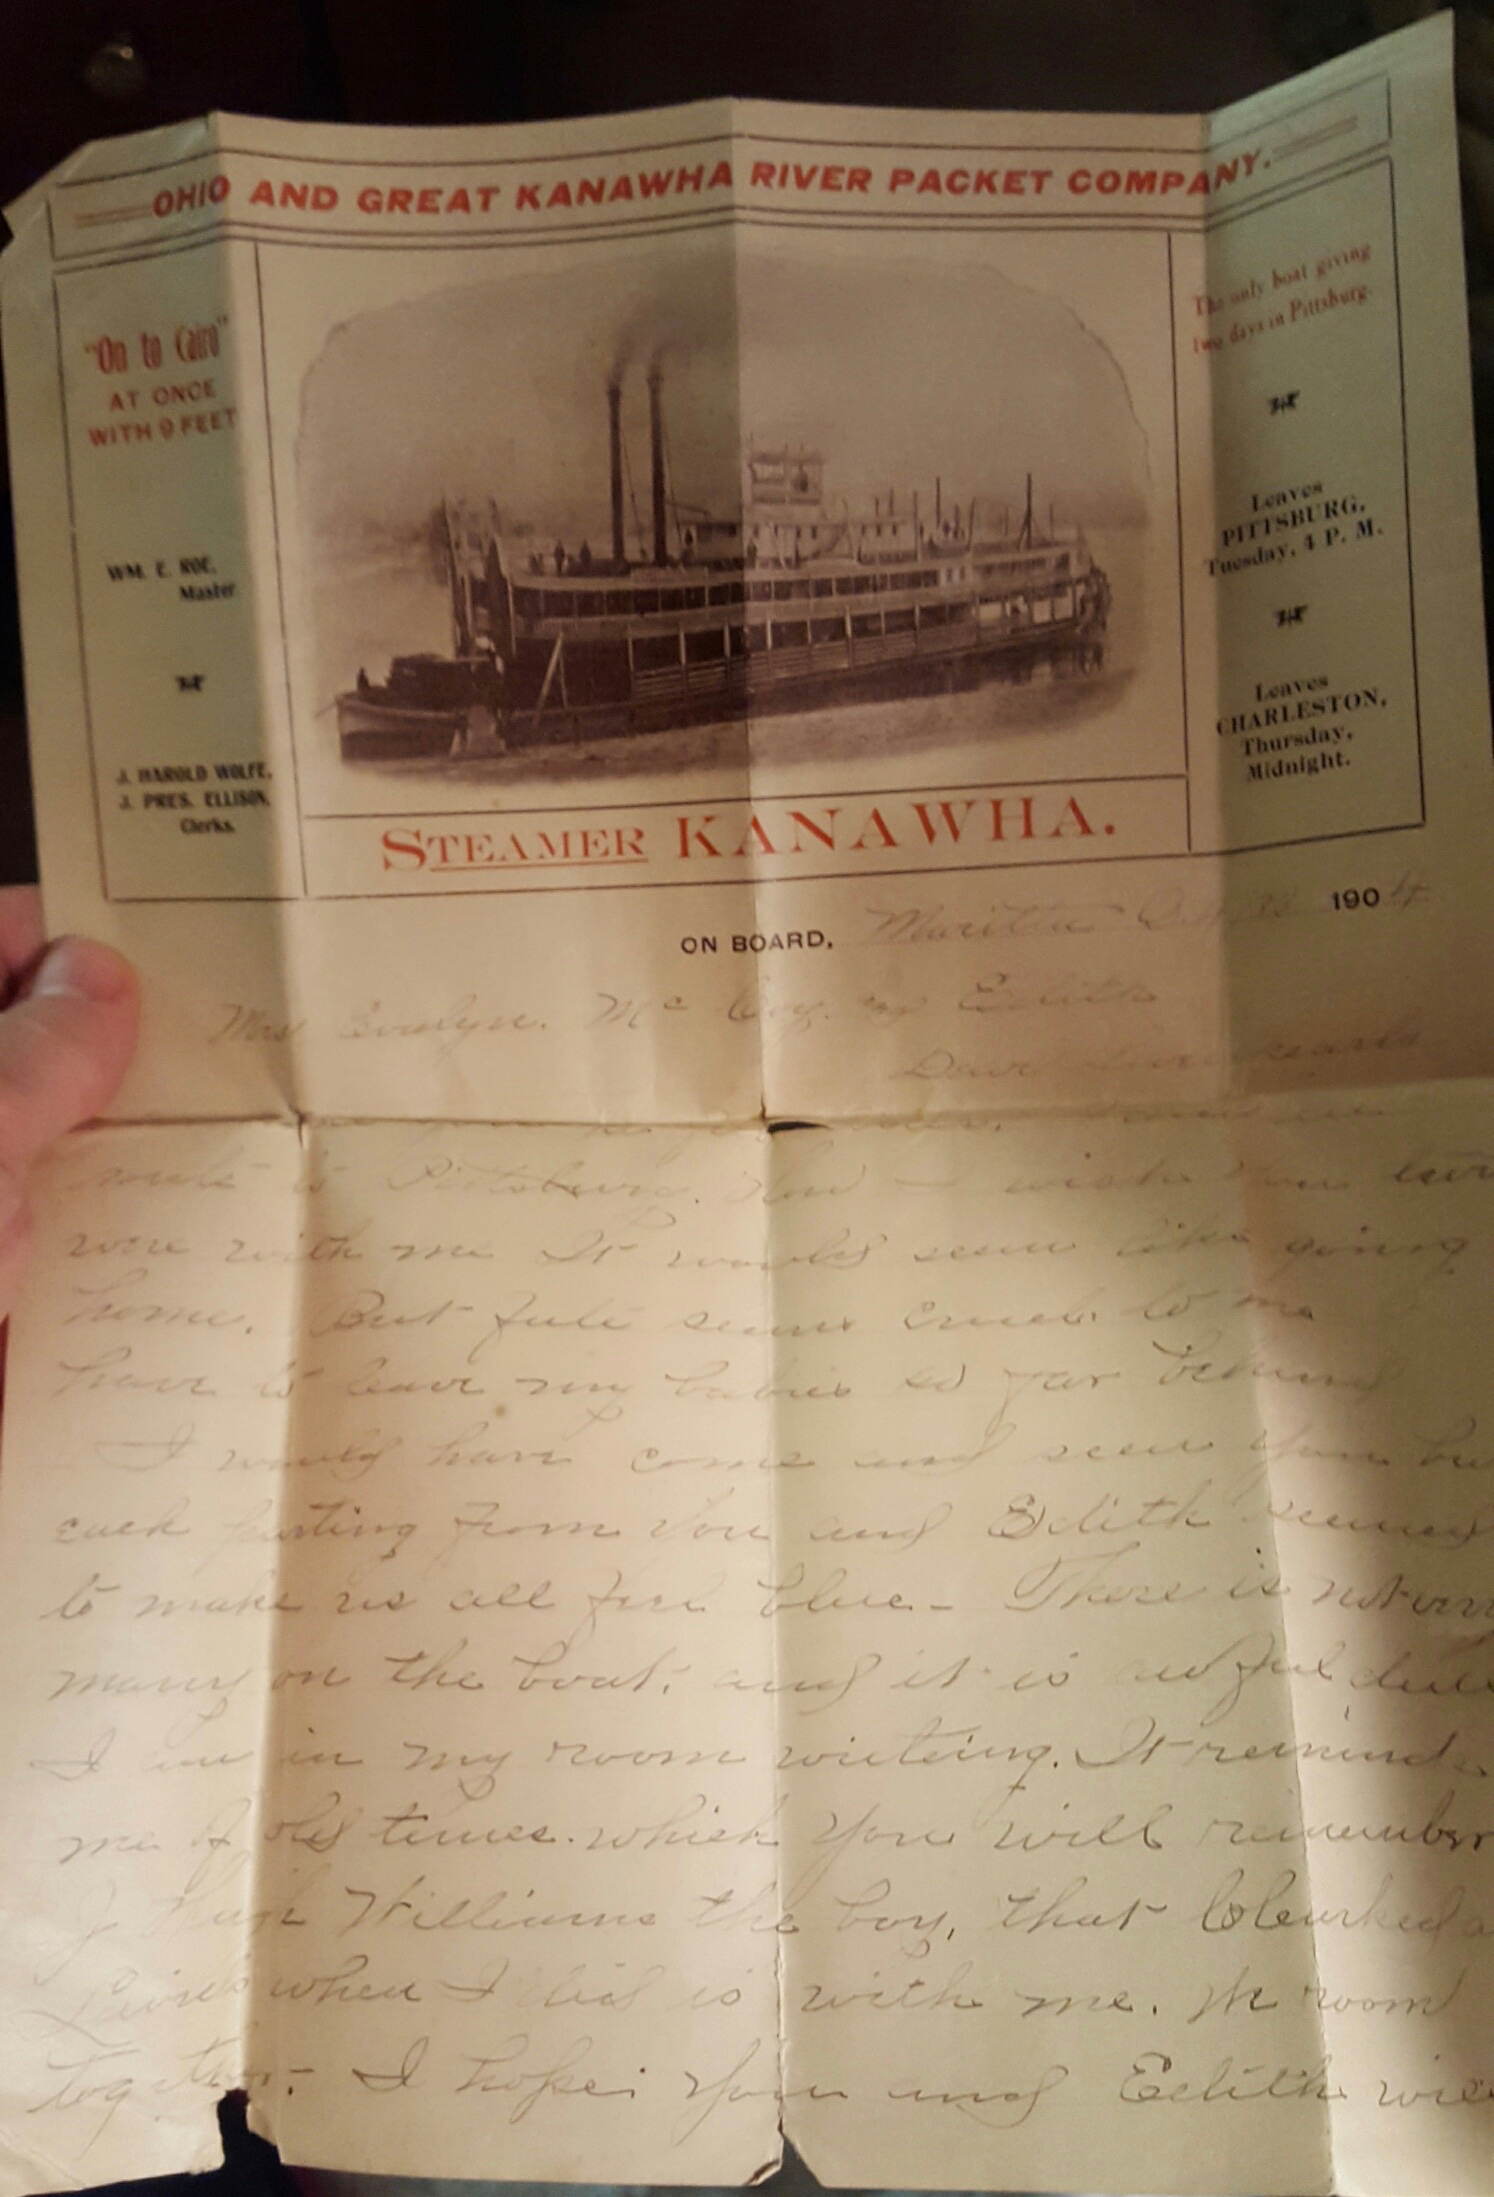 OHIO AND GREAT KANAWHA RIVER PACKET COMPANY.
"On to Cairo"
AT ONCE
WITH 9 FEET
WM. E. ROE,
Master
J. HAROLD WOLFE,
J. PRES. ELLISON,
Clerks.
The only boat giving
two days in Pittsburg.
Leaves
PITTSBURG,
Tuesday, 4 P. M.
Leaves
CHARLESTON,
Thursday,
Midnight.
STEAMER KANAWHA.
ON BOARD, 1904
Mrs Evelyn. Mc Coy. Edith
Dear
to Pittsburg. How I wish you
were with me It would seem like going
home. But fate seems cruel to me
have to leave my babies so far behind
I would have come and seen you
each parting from You and Edith seemed
to make us all feel blue - There is not very
many on the boat. and it is awful dull
I am in my room writeing. It reminds
me of old times. which You will remember
Williams the boy, that Clearked
when I did is with me. We room
together. I hope You and Edith